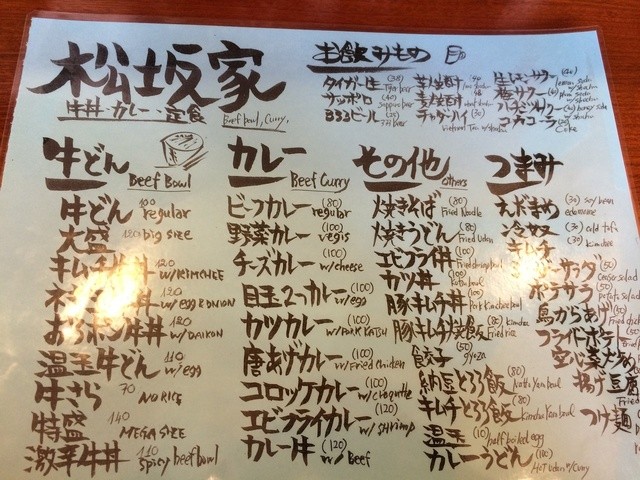 松坂家
牛丼・カレー・定食
Beef bowl, Curry,
お飲みもの
タイガー生 (38) Tiger beer
サッポロ (40) Sapporo beer
333ビール 333 beer
芋焼酎
麦焼酎
チャダハイ (30)
生レモンサワー
梅サワー
ハチミツサワー
コカコーラ Coke
牛どん
Beef Bowl
牛どん 100 regular
大盛 120 big size
キムチ牛丼 120 w/KIMCHEE
牛丼 120 w/EGG & ONION
おろポン牛丼 120 w/DAIKON
温玉牛どん 110 w/egg
牛さら 70 NO RICE
特盛 140 MEGA SIZE
激辛牛丼 110 Spicy beef bowl
カレー
Beef Curry
ビーフカレー (80) regular
野菜カレー (100) vegis
チーズカレー (100) w/cheese
目玉2つカレー (100) w/egg
カツカレー (100) w/PORK KATSU
唐あげカレー (100) w/Fried chicken
コロッケカレー (100) w/croquette
エビフライカレー (120) w/SHrimp
カレー牛 (120) w/Beef
その他
others
焼きそば (80) Fried Noodle
焼きうどん (80) Fried Udon
エビフライ丼 (100)
カツ丼 (100)
豚キムチ丼 (100)
豚キムチ焼飯 (80) Kimchee Fried rice
餃子 (50) gyoza
納豆とろろ飯 (80)
キムチとろろ飯 (80)
温玉 (10) half boiled egg
カレーうどん (100) HOT Udon w/Curry
つまみ
えだまめ (30) soy bean edamame
冷奴 (30) cold tofu
キムチ (30) kimchee
サラダ (50)
ポテサラ (50) potato salad
鳥からあげ (50) Fried chicken
フライドポテ
空心菜いため
揚げ豆腐
つけ麺